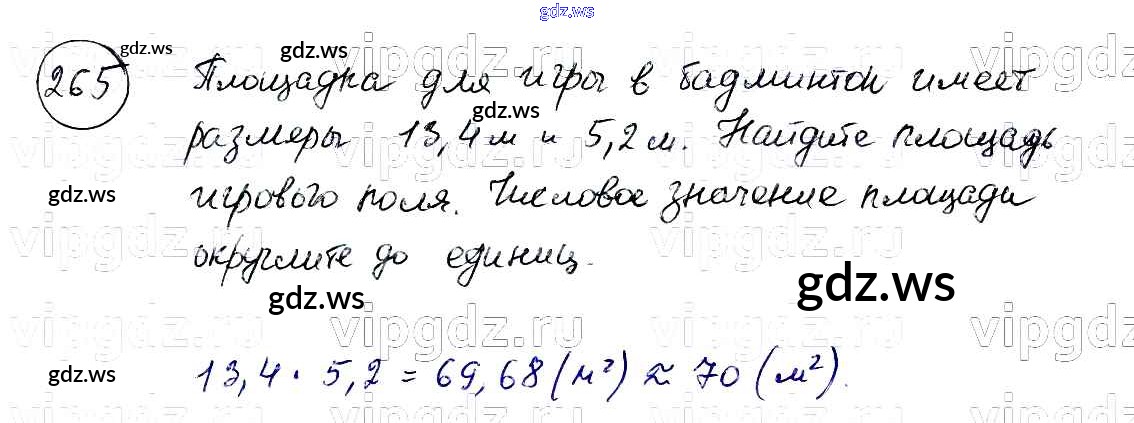 gdz.ws
265 Площадка для игры в бадминтон имеет
размеры 13,4 м и 5,2 м. Найдите площадь
игрового поля. Числовое значение площади
округлите до единиц.
13,4 · 5,2 = 69,68 (м²) ≈ 70 (м²).
gdz.ws
gdz.ws
gdz.ws
gdz.ws
gdz.ws
gdz.ws
gdz.ws
vipgdz.ru
vipgdz.ru
vipgdz.ru
vipgdz.ru